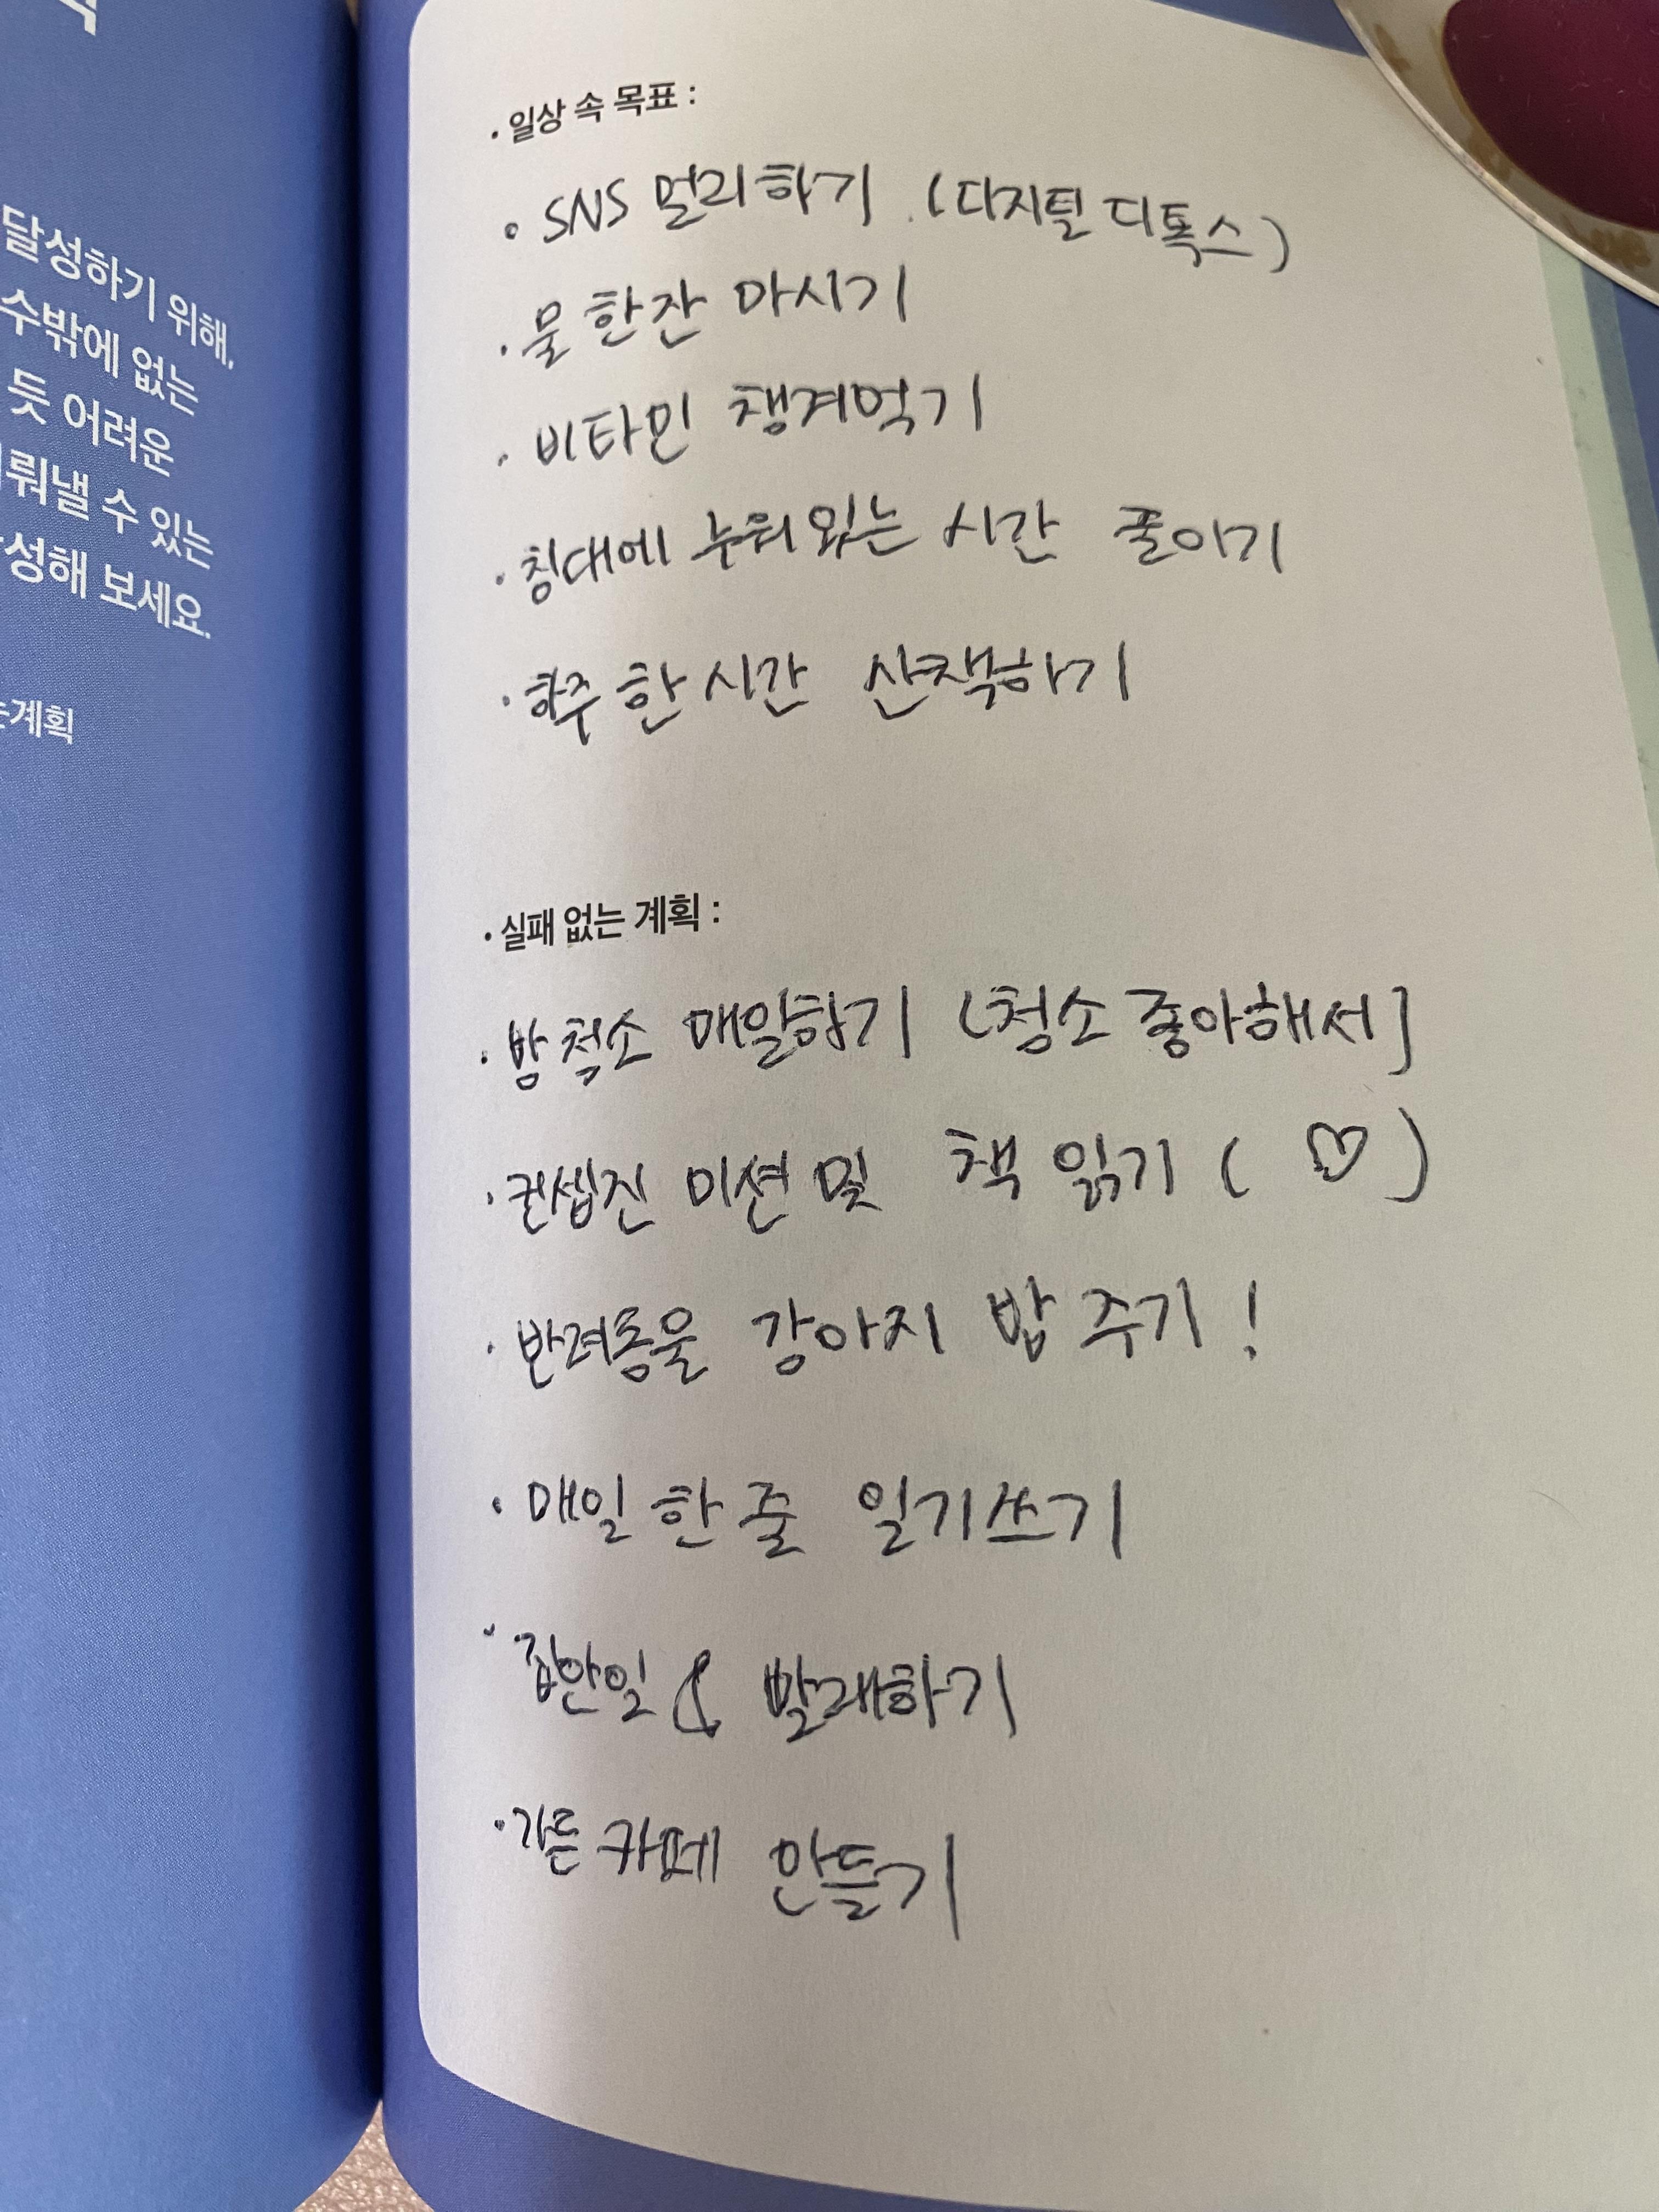 달성하기 위해,
수밖에 없는
듯 어려운
뤄낼 수 있는
성해 보세요.
계획
· 일상 속 목표 :
· SNS 멀리하기 (디지털 디톡스)
· 물 한잔 마시기
· 비타민 챙겨먹기
· 침대에 누워있는 시간 줄이기
· 하주 한시간 산책하기
· 실패 없는 계획 :
· 방 청소 매일하기 (청소 좋아해서]
· 컨셉진 미션 및 책 읽기 ( ♡ )
· 반려동물 강아지 밥 주기 !
· 매일 한 줄 일기쓰기
· 집안일 & 빨래하기
· 가든 카페 만들기